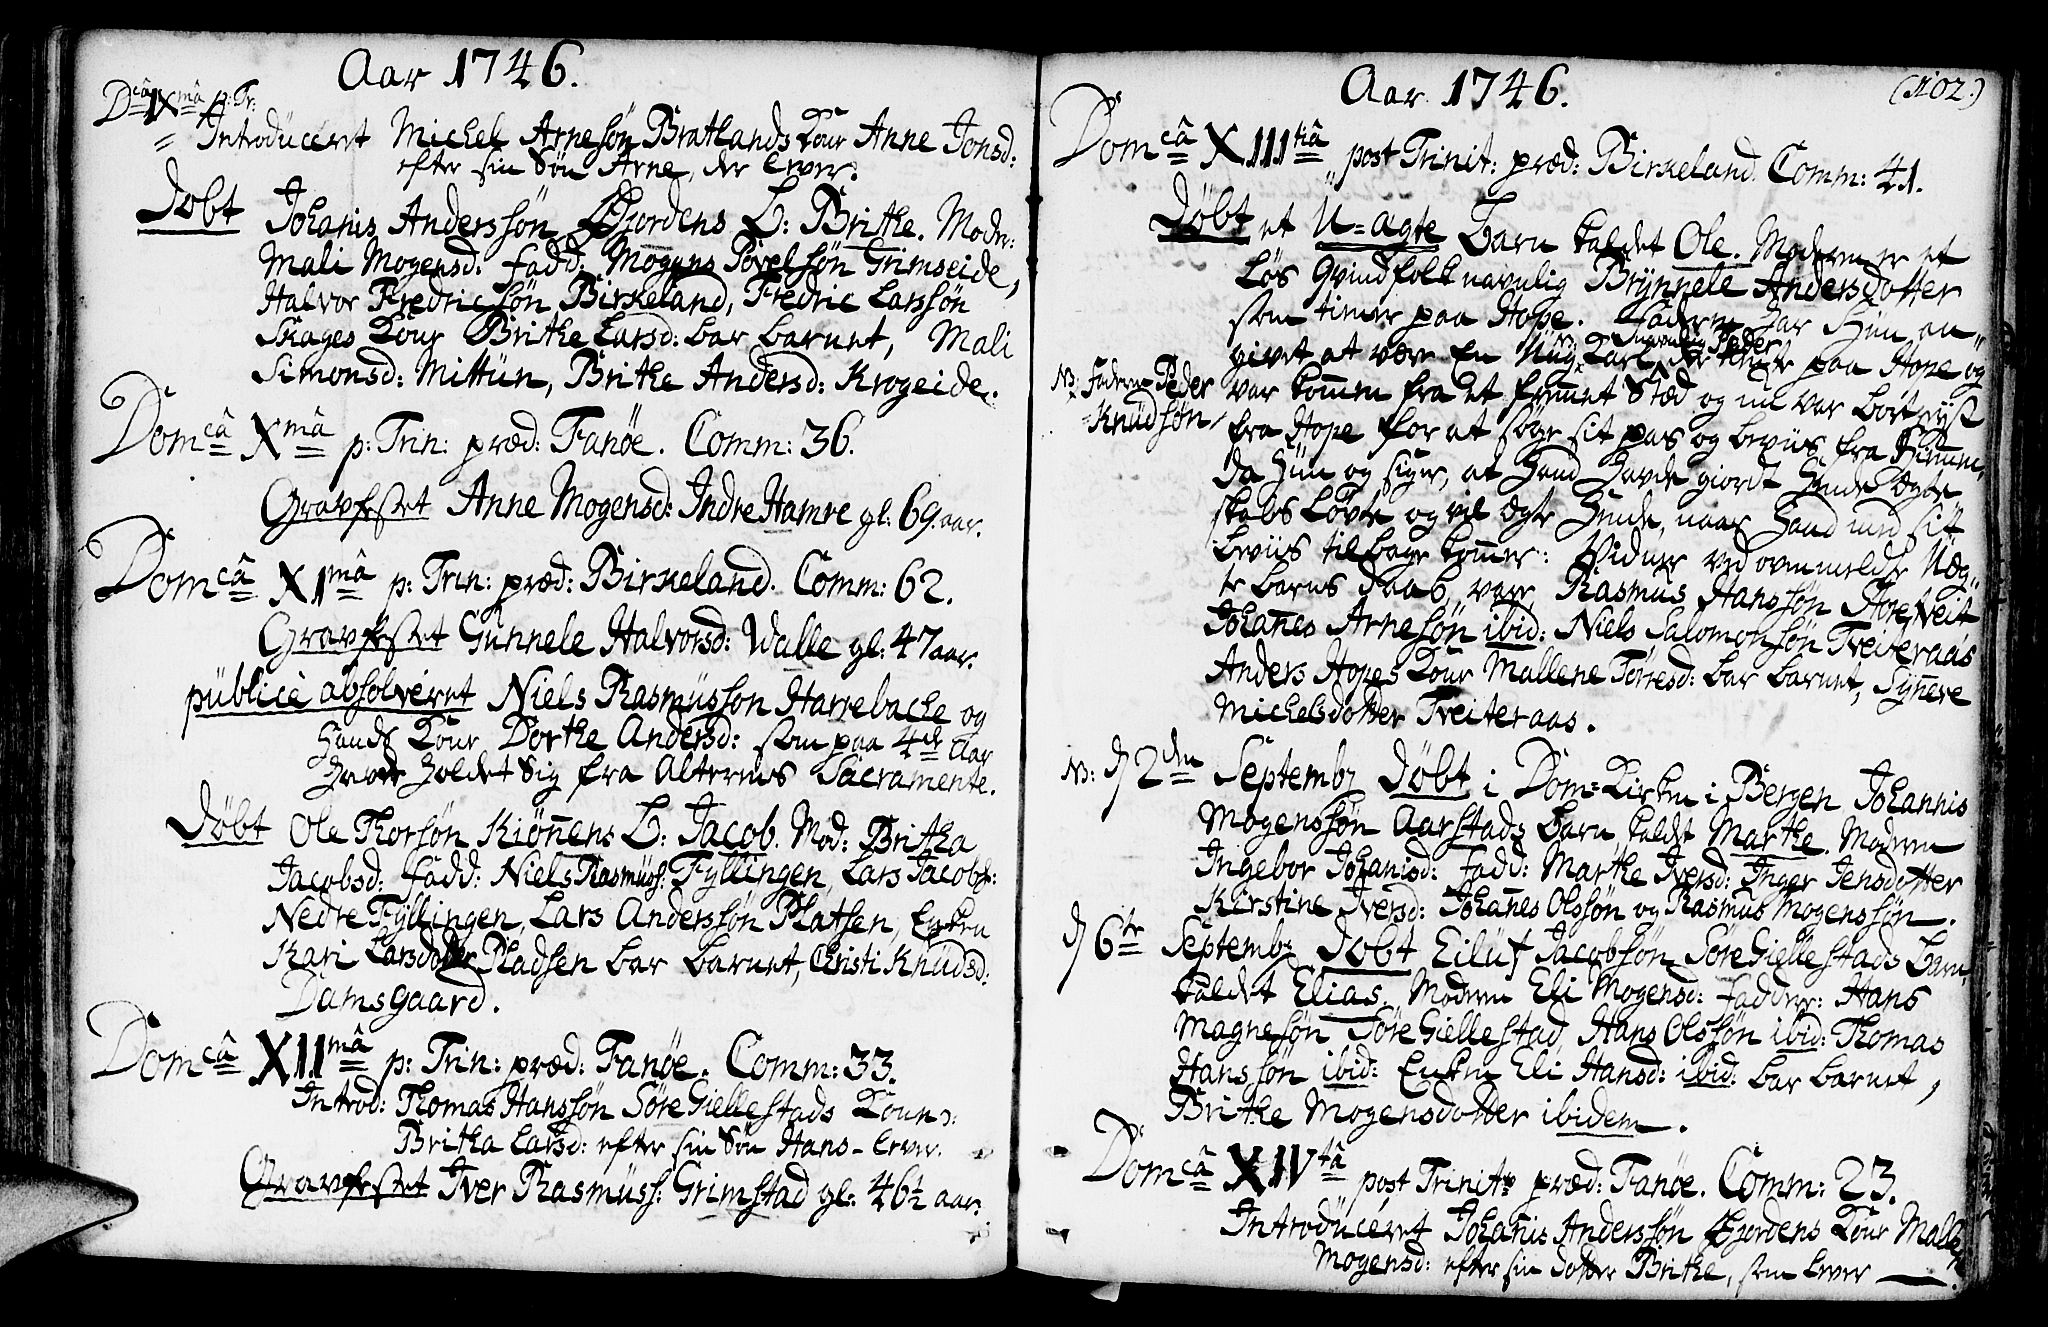 Aar 1746.
D^câ IX^mâ p: Tr:
= Introduceret Michel Arnesøn Bratlands Kone Anne Jonsd:
efter sin Søn Arne, der lever.
Døbt Johanis Anderssøn Fjordens B: Brithe. Modr:
Mali Mogensd: fadd: Mogens Povelsøn Grimseide,
Halvor Fredricsøn Birkeland, Fredric Larssøn
Skages Kone Brithe Larsd: bar barnet, Mali
Simonsd: Mittün, Brithe Andersd: Krogeide.
Dom^câ X^mâ p: Trin: præd: Fanöe. Comm: 36.
Gravfestet Anne Mogensd: Indre Hamre gl: 69. aar.
Dom^câ XI^mâ p: Trin: præd: Birkeland. Comm: 62.
Gravfestet Gunnele Halvorsd: Walle gl: 47 aar.
publicè absolveret Niels Rasmussøn Harrebache og
Hands Kone Dorthe Andersd: som paa 4de Aar
havde holdet sig fra Alterens Sacramente.
Døbt Ole Thorsøn Kiønnens B: Jacob. Mod: Britha
Jacobsd: fadd: Niels Rasmuss: Fyllingen, Lars Jacobs:
Nedre Fyllingen, Lars Anderssøn Platsen, Enken
Kari Larsdotter Pladsen bar barnet, Christi Knudsd:
Damsgaard.
Dom^câ XII^mâ p: Trin: præd: Fanöe. Comm: 33.
Introd: Thomas Hanssøn Søre Giellestads Kone
Britha Larsd: efter sin Søn Hans - lever.
Gravfestet Iver Rasmuss: Grimstad gl: 46½ aar.
Aar 1746. (102.)
Dom^câ XIII^tiâ post Trinit: præd: Birkeland. Comm: 41.
Døbt et U=ægte Barn kaldet Ole. Moderen er et
Løs Qvindfolk navnlig Brynnele Andersdotter
som tiener paa Hope. Faderen har Hun an-
navnlig Peder
givet at være En Ung Karl, der tiente paa Hope og
NB: Faderen Peder
Knudsøn
var kommen fra et fremmet Stæd og nu var bortreyst
fra Hope for at søge sit pas og beviis fra
da Hun og siger, at Hand havde giordt Hende Ægte
skabs Løvte og vil Ægte Hende, naar Hand med sit
beviis tilbage kommer: Vidner ved ovenmeldte Uæg-
te barns Daab, vare, Rasmus Hanssøn Hopetveit
Johanes Arnesøn ibid: Niels Salomonsøn Tveiteraas
Anders Hopes Kone Mallene Torresd: bar barnet, Synneve
Michelsdotter Tveiteraas.
NB: d 2den Septembr Døbt i Dom=Kirken i Bergen Johannis
Mogenssøn Aarstads Barn kaldet Marthe. Moderen
Ingebor Johanisd: fadd: Marthe Iversd: Inger Jensdotter
Kirstine Iversd: Johanes Olssøn og Rasmus Mogenssøn.
d 6te Septembr Døbt Eiluf Jacobsøn Søre Giellestads Barn
kaldet Elias. Moderen Eli Mogensd: Faddere: Hans
Magnesøn Søre Giellestad, Hans Olssøn ibid: Thomas
Hanssøn ibid: Enken Eli Hansd: ibid: bar barnet,
Brithe Mogensdotter ibidem.
Dom^câ XIV^tâ post Trinit: præd: Fanöe. Comm: 23.
Introduceret Johanis Anderssøn Fjordens Kone Malle
Mogensd: efter sin Dotter Brithe, som lever